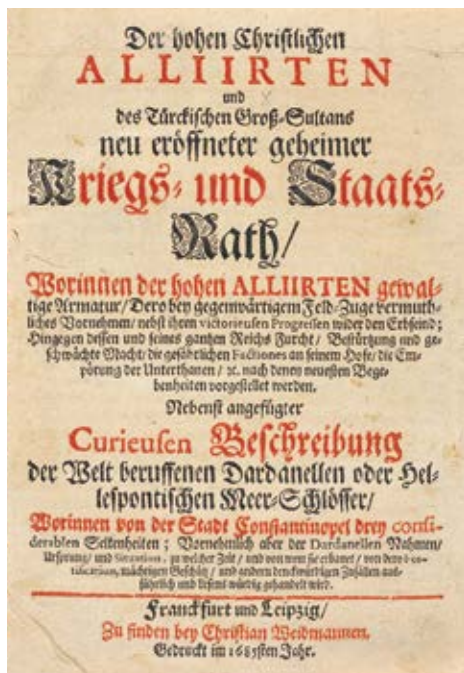 Der hohen Christlichen
ALLIIRTEN
und
des Türckischen Groß-Sultans
neu eröffneter geheimer
Kriegs- und Staats-
Rath/
Worinnen der hohen ALLIIRTEN gewal-
tige Armatur/ Dero bey gegenwärtigem Feld-Zuge vermuth-
liches Vornehmen/ nebst ihrem victorieusen Progressen wider den Erbfeind;
Hingegen dessen und seines gantzen Reichs Furcht/ Bestürtzung und ge-
schwächte Macht/ die gefährlichen Factiones an seinem Hofe/ die Em-
pörung der Unterthanen/ ꝛc. nach denen neuesten Bege-
benheiten vorgestellet werden.
Nebenst angefügter
Curieusen Beschreibung
der Welt beruffenen Dardanellen oder Hel-
lespontischen Meer-Schlösser/
Worinnen von der Stadt Constantinopel drey consi-
derablen Seltenheiten; Vornehmlich aber der Dardanellen Nahmen/
Ursprung/ und Situation, zu welcher Zeit/ und von wem sie erbauet/ von dero
mächtigen Geschütz/ und andern denckwürdigen Zufällen aus-
führlich und lesens würdig gehandelt wird.
Franckfurt und Leipzig/
Zu finden bey Christian Weidmannen.
Gedruckt im 1685sten Jahr.